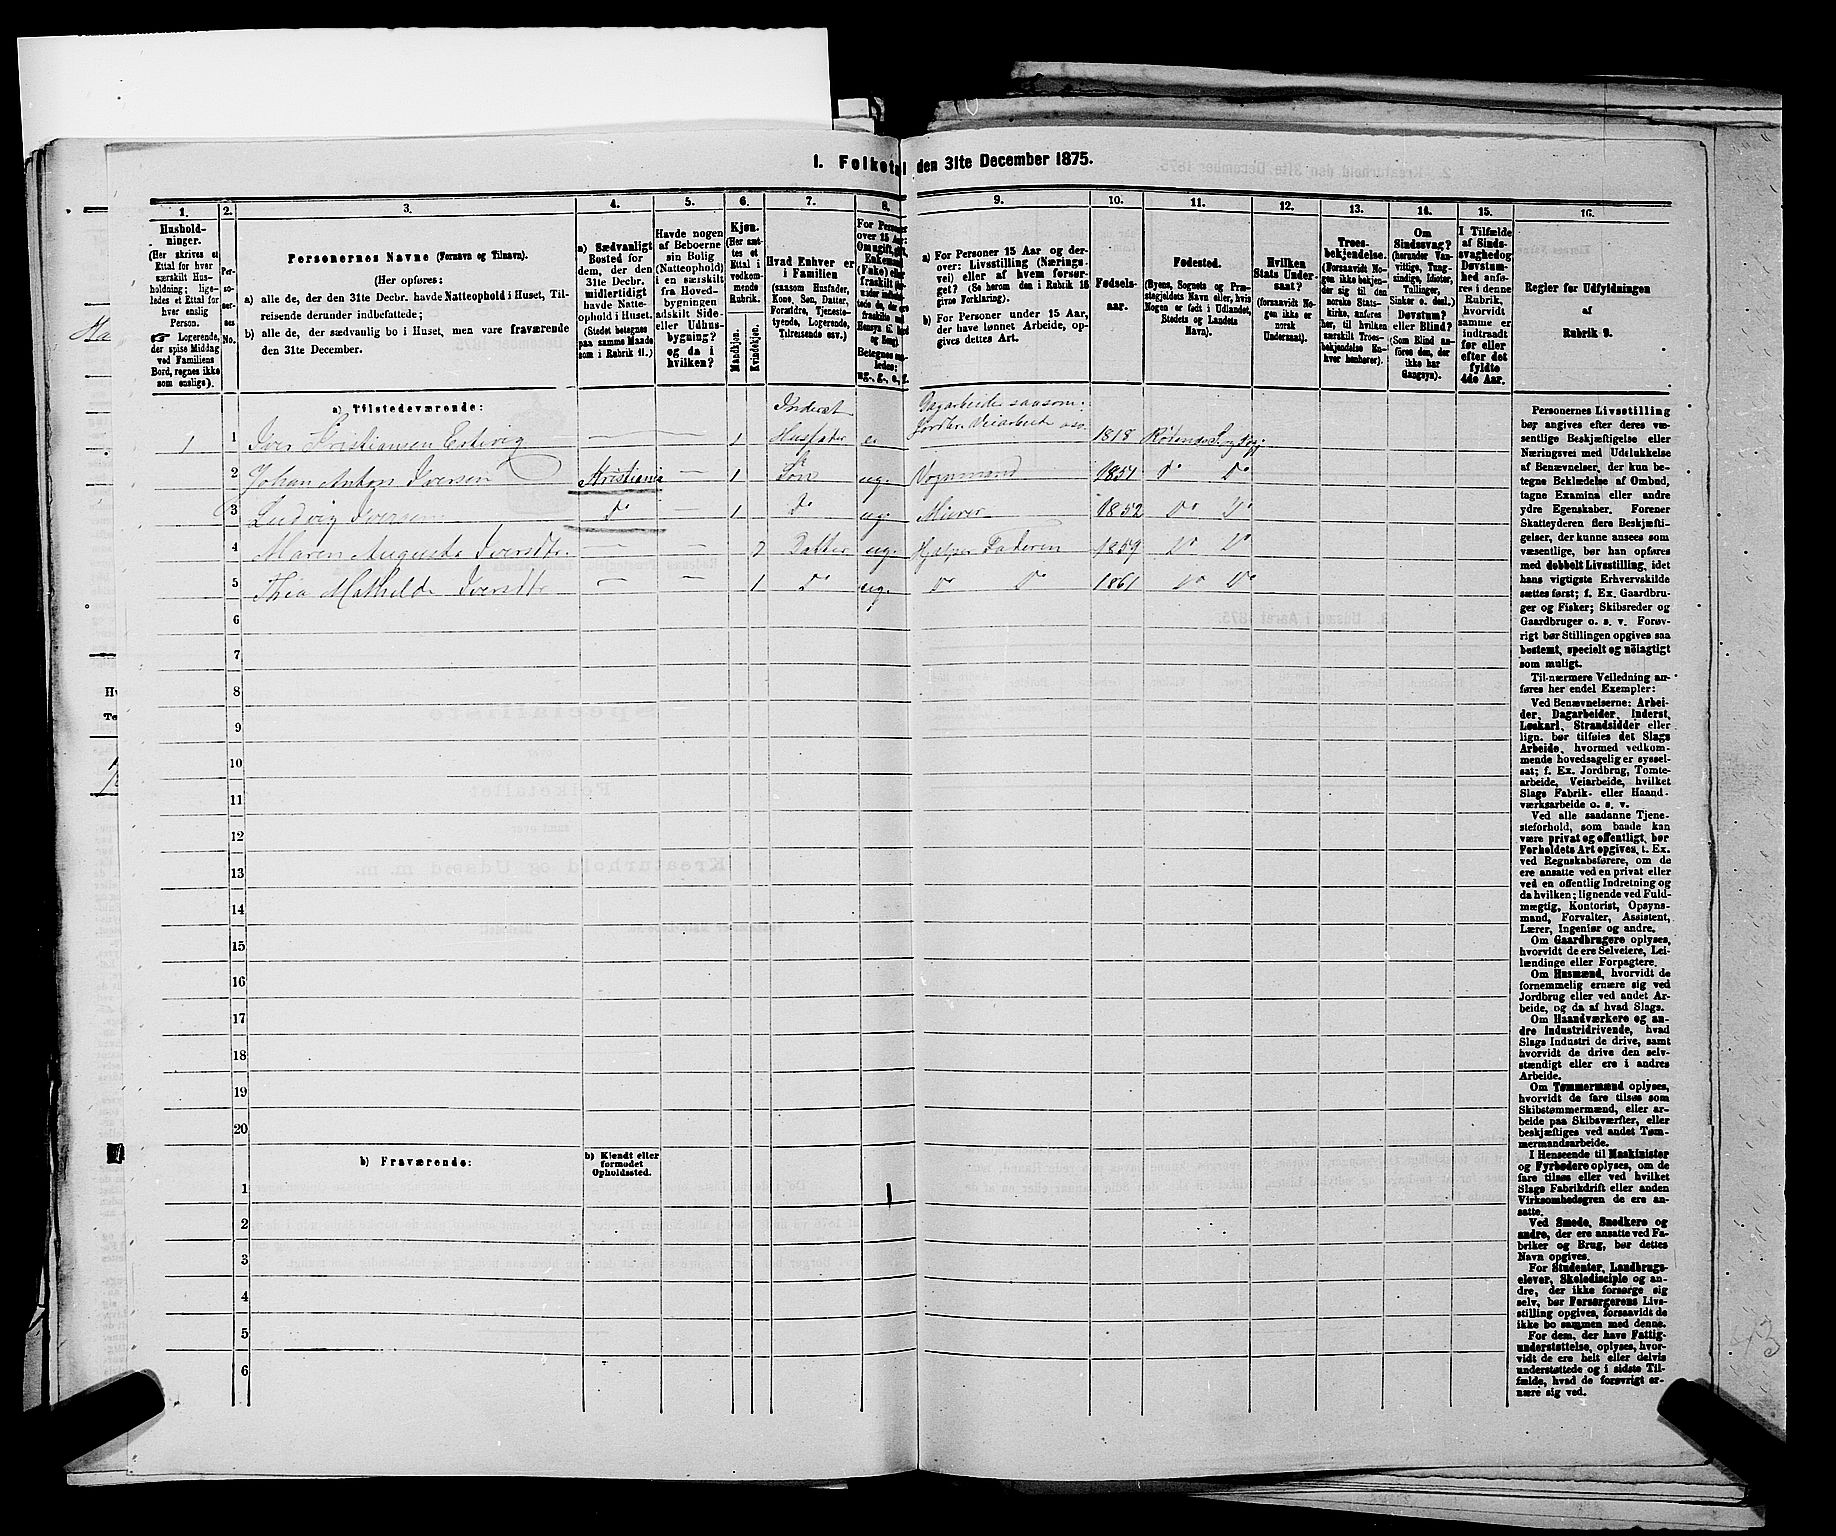 1. Folketal den 31te December 1875.
1.
2.
3.
4.
5.
6.
7.
8.
9.
10.
11.
12.
13.
14.
15.
16.
Hushold-
ninger.
(Her skrives et
Ettal for hver
særskilt Hus-
holdning; lige-
ledes et Ettal for
hver enslig
Person.
☞ Logerende,
der spise Middag
ved Familiens
Bord, regnes ikke
som enslige).
Per-
so-
ner-
nes
No.
Personernes Navne (Fornavn og Tilnavn).
(Her opføres:
a) alle de, der den 31te Decbr. havde Natteophold i Huset, Til-
reisende derunder indbefattede;
b) alle de, der sædvanlig bo i Huset, men vare fraværende
den 31te December.
a) Sædvanligt
Bosted for
dem, der den
31te Decbr.
midlertidigt
havde Natte-
ophold i Huset.
(Stedet betegnes
paa samme Maade
som i Rubrik 11.)
Havde nogen
af Beboerne
sin Bolig
(Natteophold)
i en særskilt
fra Hoved-
bygningen
adskilt Side-
eller Udhus-
bygning?
og da i
hvilken?
Kjøn.
(Her sæt-
tes et
Ettal i
vedkom-
mende
Rubrik.
Mandkjøn.
Kvindekjøn.
Hvad Enhver er
i Familien
(saasom Husfader,
Kone, Søn, Datter,
Forældre, Tjeneste-
tyende, Logerende,
Tilreisende osv.)
a) For Personer 15 Aar og der-
over: Livsstilling (Nærings-
vei) eller af hvem forsør-
get? (Se herom den i Rubrik 16
givne Forklaring).
b) For Personer under 15 Aar,
der have lønnet Arbeide, op-
gives dettes Art.
Fødsels-
aar.
Fødested.
(Byens, Sognets og Præ-
stegjeldets Navn eller, hvis
Nogen er født i Udlandet,
Stedets og Landets
Navn).
Hvilken
Stats Under-
saat?
(forsaavidt No-
gen ikke er
norsk
Undersaat).
Troes-
bekjendelse.
(Forsaavidt No-
gen ikke bekjen-
der sig til den
norske Stats-
kirke, anføres
her, til hvilken
særskilt Troes-
bekjendelse En-
hver henhører).
Om
Sindssvag?
(herunder Van-
vittige, Tung-
sindige, Idioter,
Tullinger,
Sinker o. desl.)
Døvstum?
eller Blind?
(Som Blind an-
føres den, der
ikke har
Gangsyn).
I Tilfælde
af Sinds-
svaghed og
Døvstum-
hed anfø-
res i denne
Rubrik,
hvorvidt
samme er
indtraadt
før eller
efter det
fyldte
4de Aar.
Regler for Udfyldningen
af
Rubrik 9.
a) Tilstedeværende:
1 1 Iver Kristiansen — — 1 Inderst Husfader e. Dagarbeide saasom Jordbr. Veiarbeide osv. 1818
2 Johan Anton Iversen Kristiania — 1 Søn ug. Vognmand 1851 Do Do
3 Ludvig Iversen Do — 1 Do ug. Murer 1852 Do Do
4 Maren Auguste Iversdtr. — — 1 Datter ug. Hjælper Faderen 1859 Do Do
5 Thea Mathilde Iversdtr — — 1 Do ug. Do Do 1861 Do Do
6
7
8
9
10
11
12
13
14
15
16
17
18
19
20
b) Fraværende:
b) Kjendt eller
formodet
Opholdssted.
1
2
3
4
5
6
Personernes Livsstilling
bør angives efter deres væ-
sentlige Beskjæftigelse eller
Næringsvei med Udelukkelse
af Benævnelser, der kun be-
tegne Beklædelse af Ombud,
tagne Examina eller andre
ydre Egenskaber. Forener
Skatteyderen flere Beskjæfti-
gelser, der kunne ansees som
væsentlige, bør han opføres
med dobbelt Livsstilling, idet
hans vigtigste Erhvervskilde
sættes først; f. Ex. Gaardbru-
ger og Fisker; Skibsreder og
Gaardbruger o. s. v. Forøv-
rigt bør Stillingen opgives saa
bestemt, specielt og nøiagtigt
som muligt.
Til nærmere Veiledning an-
føres her endel Exempler:
Ved Benævnelserne: Arbei-
der, Dagarbeider, Inderst,
Løskarl, Strandsidder eller
lign. bør tilføies det Slags
Arbeide, hvormed vedkom-
mende hovedsagelig er syssel-
sat; f. Ex. Jordbrug, Tomte-
arbeide, Veiarbeide, hvilket
Slags Fabrik- eller Haand-
værksarbeide o. s. v.
Ved alle saadanne Tjene-
steforhold, som baade kan
være privat og offentligt, bør
Forholdets Art opgives, f. Ex.
ved Regnskabsførere, om de
ere ansatte ved en privat eller
ved en offentlig Indretning og
da hvilken; lignende ved Fuld-
mægtig, Kontorist, Opsyns-
mand, Forvalter, Assistent,
Lærer, Ingeniør og andre.
Om Gaardbrugere oplyses,
hvorvidt de ere Selveiere, Lei-
lændinge eller Forpagtere.
Om Husmænd, hvorvidt de
fornemmelig ernære sig ved
Jordbrug eller ved andet Ar-
beide, og da af hvad Slags.
Om Haandværkere og an-
dre Industridrivende, hvad
Slags Industri de drive, samt
hvorvidt de drive den selv-
stændigt eller ere i andres
Arbeide.
Om Tømmermænd oplyses,
hvorvidt de fare tilsøs som
Skibstømmermænd, eller ar-
beide paa Skibsværfter, eller
beskjæftiges ved andet Tøm-
mermandsarbeide.
I Henseende til Maskinister
og Fyrbødere oplyses, om de
fare tilsøs eller ved hvilket
Slags Fabrikdrift eller anden
Virksomhedsgren de ere an-
satte.
Ved Smede, Snedkere og
andre, der ere ansatte ved Fa-
briker og Brug, bør dettes
Navn opgives.
For Studenter, Landbrugs-
elever, Skoledisciple og an-
dre, der ikke forsørge sig
selv, bør Forsørgerens Livs-
stilling opgives, forsaavidt de
ikke bo sammen med denne.
For dem, der have Fattig-
understøttelse, oplyses, hvor-
vidt de ere helt eller delvis
understøttede og i sidste Til-
fælde, hvad de forøvrigt er-
nære sig ved.